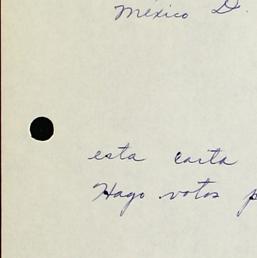 México D.
esta carta
Hago votos p